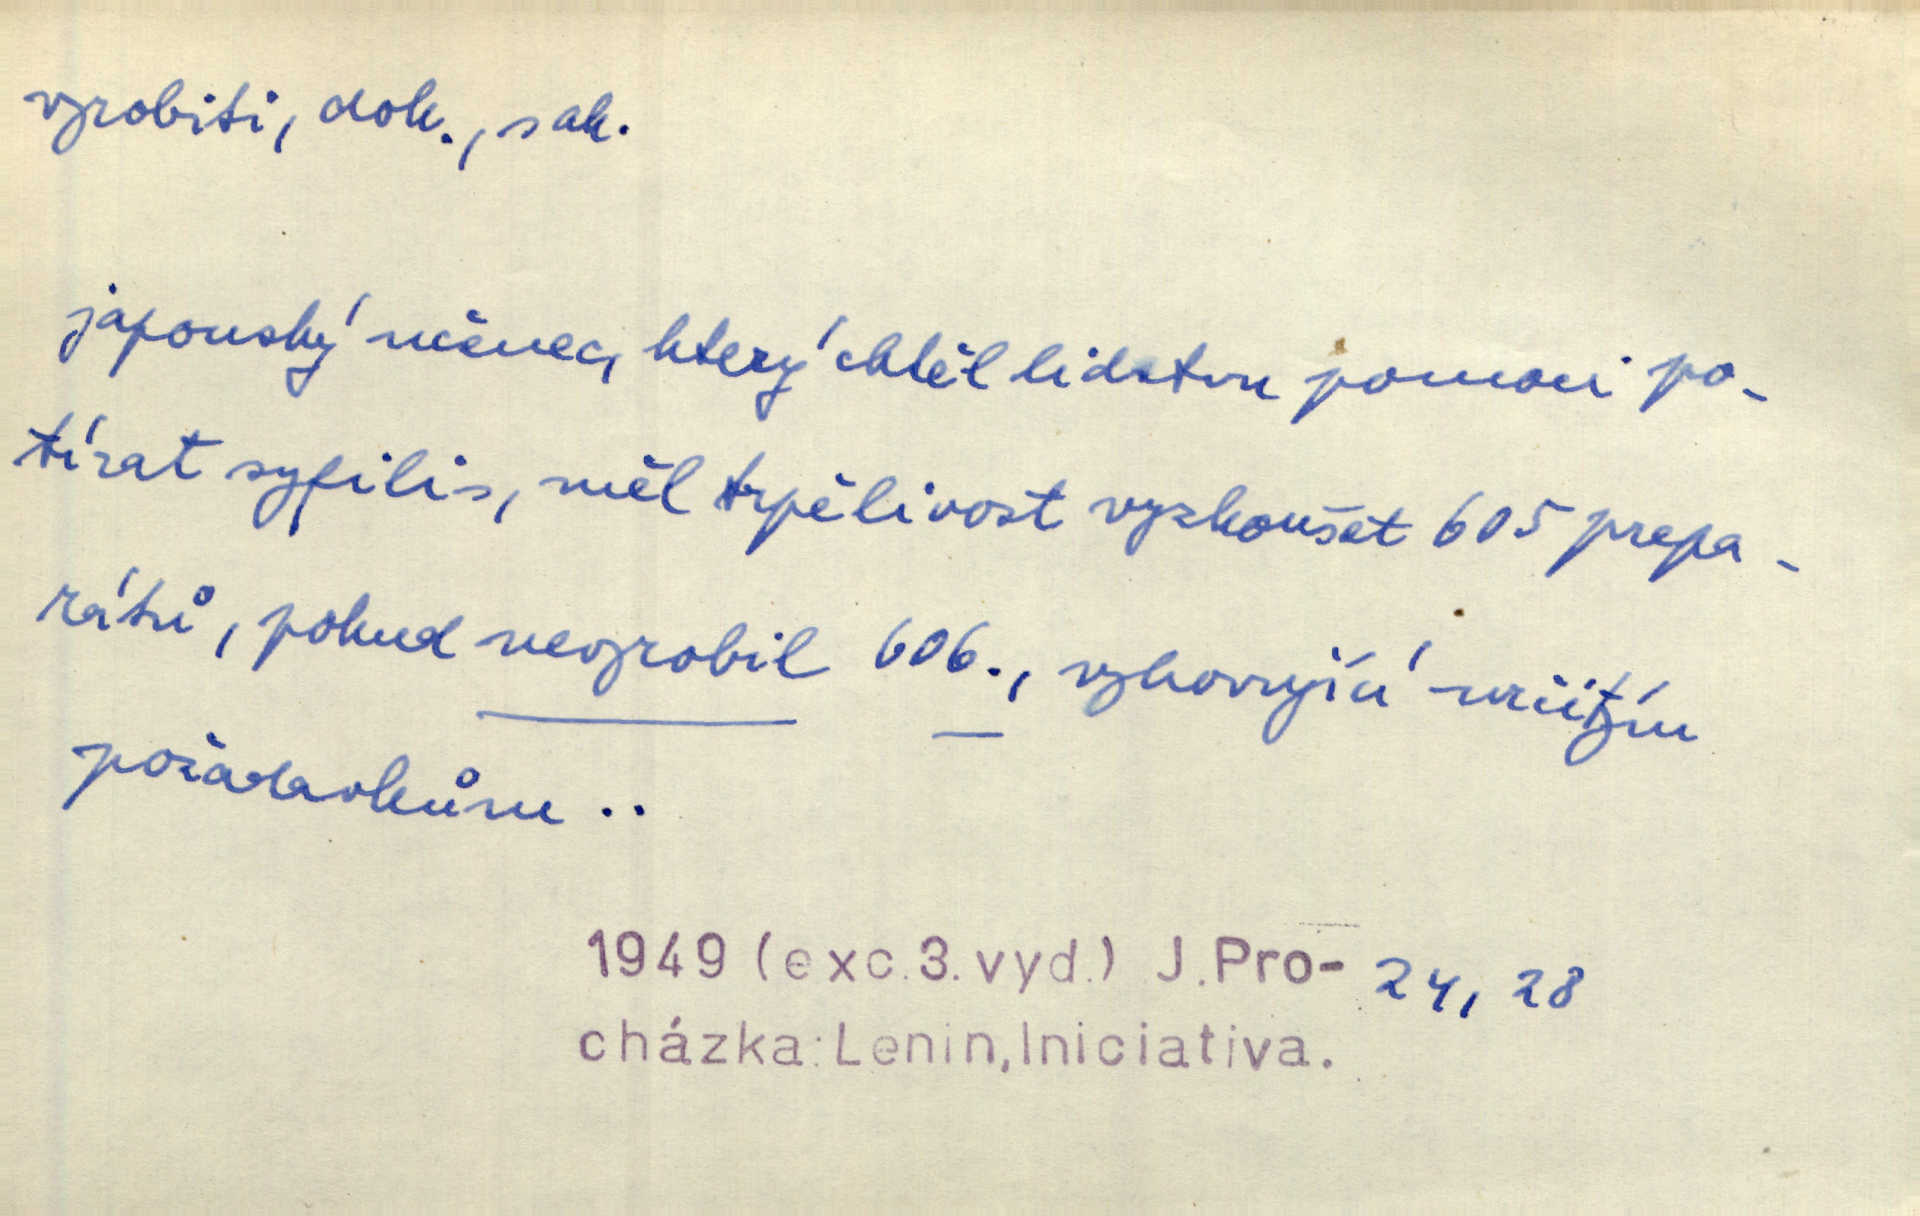 vyrobiti, dok., sak.
japonský učenec, který chtěl lidstvu pomoci po-
tírat syfilis, měl trpělivost vyzkoušet 605 prepa-
rátů, pokud nevyrobil 606., vyhovující určitým
požadavkům ..
1949 (exc.3.vyd.) J.Pro- 24, 28
cházka:Lenin,Iniciativa.